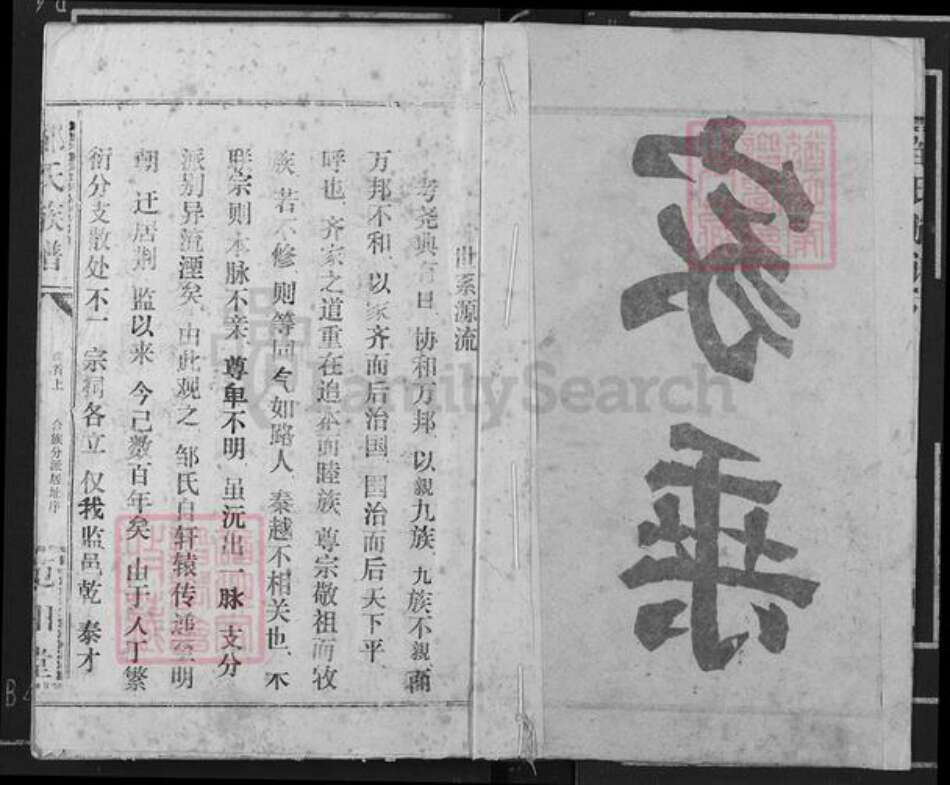 家乘
世系源流
考尧典有曰 协和万邦 以親九族 九族不親 而
万邦不和 以家齐而后治国 国治而后天下平
呼也 齐家之道重在追本而睦族 尊宗敬祖而收
族 若不修 则等同气如路人 秦越不相关也 不
联宗则本脉不亲 尊卑不明 虽沅出一脉 支分
派别异流湮矣 由此观之 邹氏自轩辕传递至明
朝 迁居荆 监以来 今己数百年矣 由于人丁繁
衍分支散处不一 宗祠各立 仅我监邑乾 泰才
氏族谱
卷首上
合族分派居址序
FamilySearch